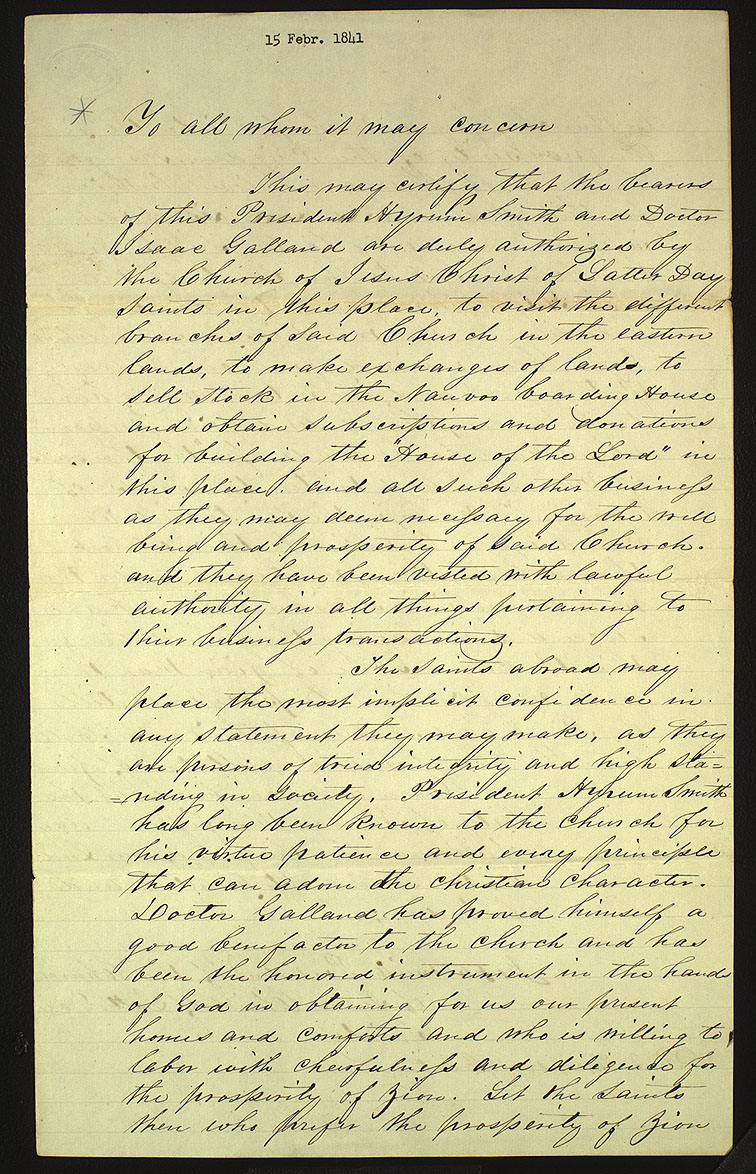 15 Febr. 1841
To all whom it may concern
This may certify that the bearers
of this President Hyrum Smith and Doctor
Isaac Galland are duly authorized by
the Church of Jesus Christ of Latter Day
Saints in this place, to visit the different
branches of said Church in the eastern
lands, to make exchanges of lands, to
sell stock in the Nauvoo boarding House
and obtain subscriptions and donations
for building the "House of the Lord" in
this place. and all such other business
as they may deem necessary for the well
being and prosperity of said Church.
and they have been vested with lawful
authority in all things pertaining to
thier business transactions.
The Saints abroad may
place the most implicit confidence in
any statement they may make, as they
are persons of tried integrity and high sta=
=nding in Society. President Hyrum Smith
has long been known to the church for
his virtue patience and every principle
that can adorn the christian character.
Doctor Galland has proved himself a
good benefactor to the church and has
been the honored instrument in the hands
of God in obtaining for us our present
homes and comforts and who is willing to
labor with cheerfulness and diligence for
the prosperity of Zion. Let the Saints
then who prefer the prosperity of Zion